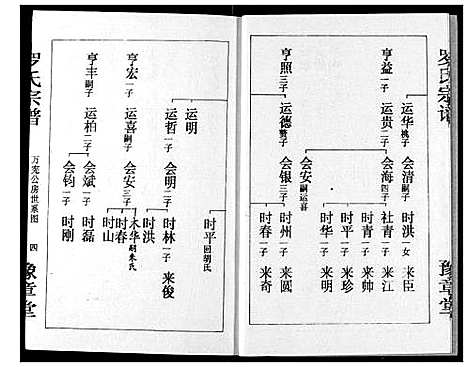 罗氏宗谱
豫章堂
亨益 一子
运华 桃子
会清 嗣子
时洪 一女
来臣
运贵 二子
会海 四子
社青 二子
来江
时青 一子
来帅
时平 一子
来珍
时华 一子
来明
会安 嗣运喜
亨照 三子
运德 赘子
会银 三子
时州 一子
来圆
时春 一子
来奇
运明
时平 回胡氏
运哲 一子
会明 二子
时林 一子
来俊
时洪
亨宏 一子
运喜 嗣子
会安 三子
木华 嗣朱氏
时春 一子
时山
亨丰 嗣子
运柏 二子
会斌 一子
时磊
会钧 一子
时刚
罗氏宗谱
万宠公房世系图
四
豫章堂